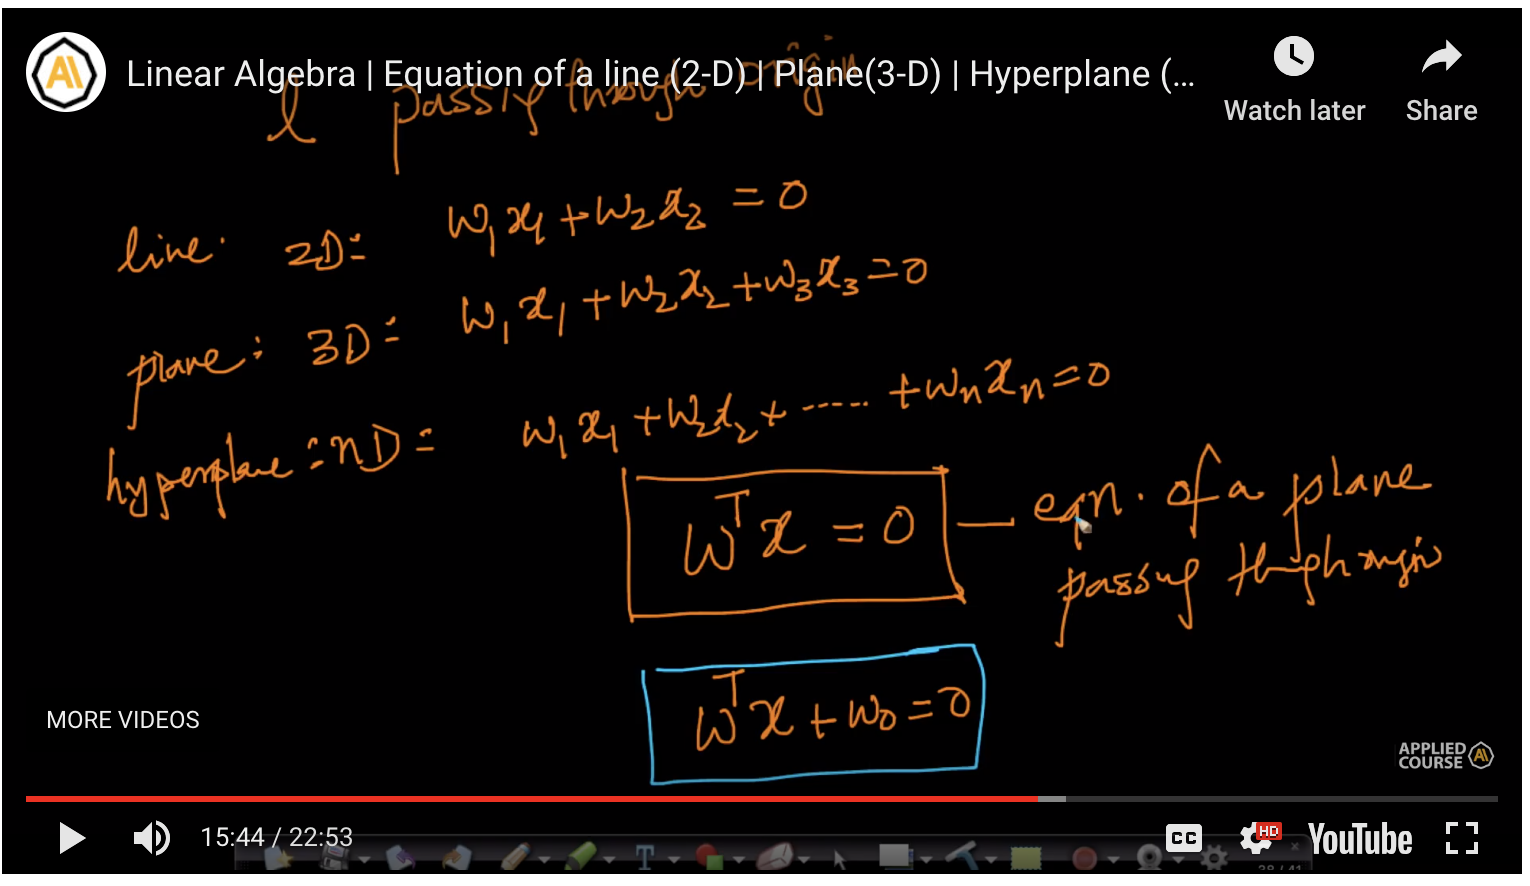 Linear Algebra | Equation of a line (2-D) | Plane(3-D) | Hyperplane (...
Watch later
Share
l passing through origin
line: 2D: w₁x₁ + w₂x₂ = 0
plane: 3D: w₁x₁ + w₂x₂ + w₃x₃ = 0
hyperplane: nD: w₁x₁ + w₂x₂ + ...... + wₙxₙ = 0
wᵀx = 0 — eqn. of a plane
passing through origin
wᵀx + w₀ = 0
MORE VIDEOS
APPLIED
COURSE
15:44 / 22:53
CC
HD
YouTube
T